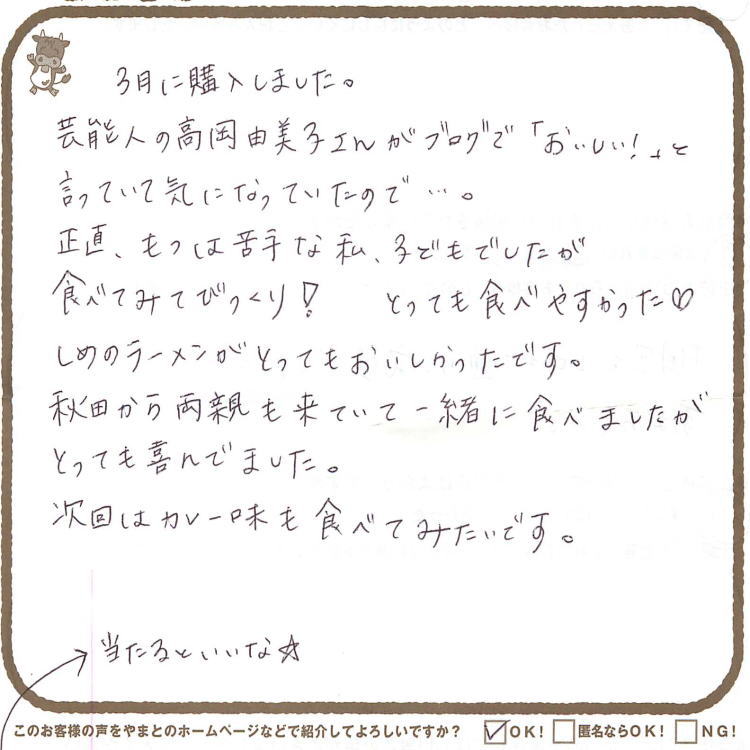 3月に購入しました。
芸能人の高岡由美子さんがブログで「おいしい!」と
言っていて気になっていたので…。
正直、もつは苦手な私、子どもでしたが
食べてみてびっくり! とっても食べやすかった♡
しめのラーメンがとってもおいしかったです。
秋田から両親も来ていて一緒に食べましたが
とっても喜んでました。
次回はカレー味も食べてみたいです。
当たるといいな☆
このお客様の声をやまとのホームページなどで紹介してよろしいですか? ☑OK! □匿名ならOK! □NG!